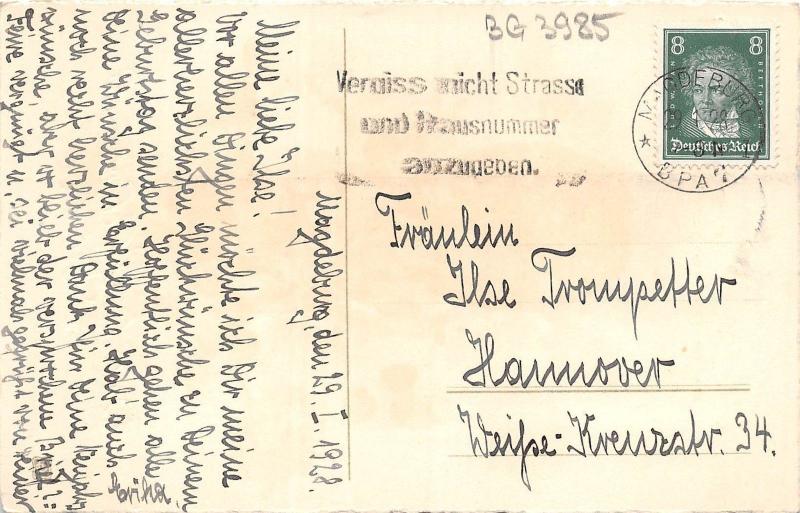 BG 3985
Vergiss nicht Strasse
und Hausnummer
anzugeben.
8 8
Deutsches Reich
MAGDEBURG
BPA
Magdeburg, den 29. I. 1928.
Meine liebe Ilse!
Vor allen Dingen möchte ich Dir meine
allerherzlichsten Glückwünsche zu Deinem
Geburtstag senden. Hoffentlich gehen alle
Deine Wünsche in Erfüllung. Hab auch
noch recht herzlichen Dank für Deine Neujahrs-
wünsche, aber wo bleibt der versprochene Brief?
Feire vergnügt u. sei vielmals gegrüßt von Deiner
Erika.
Fräulein
Ilse Trompetter
Hannover
Weiße-Kreuzstr. 34.